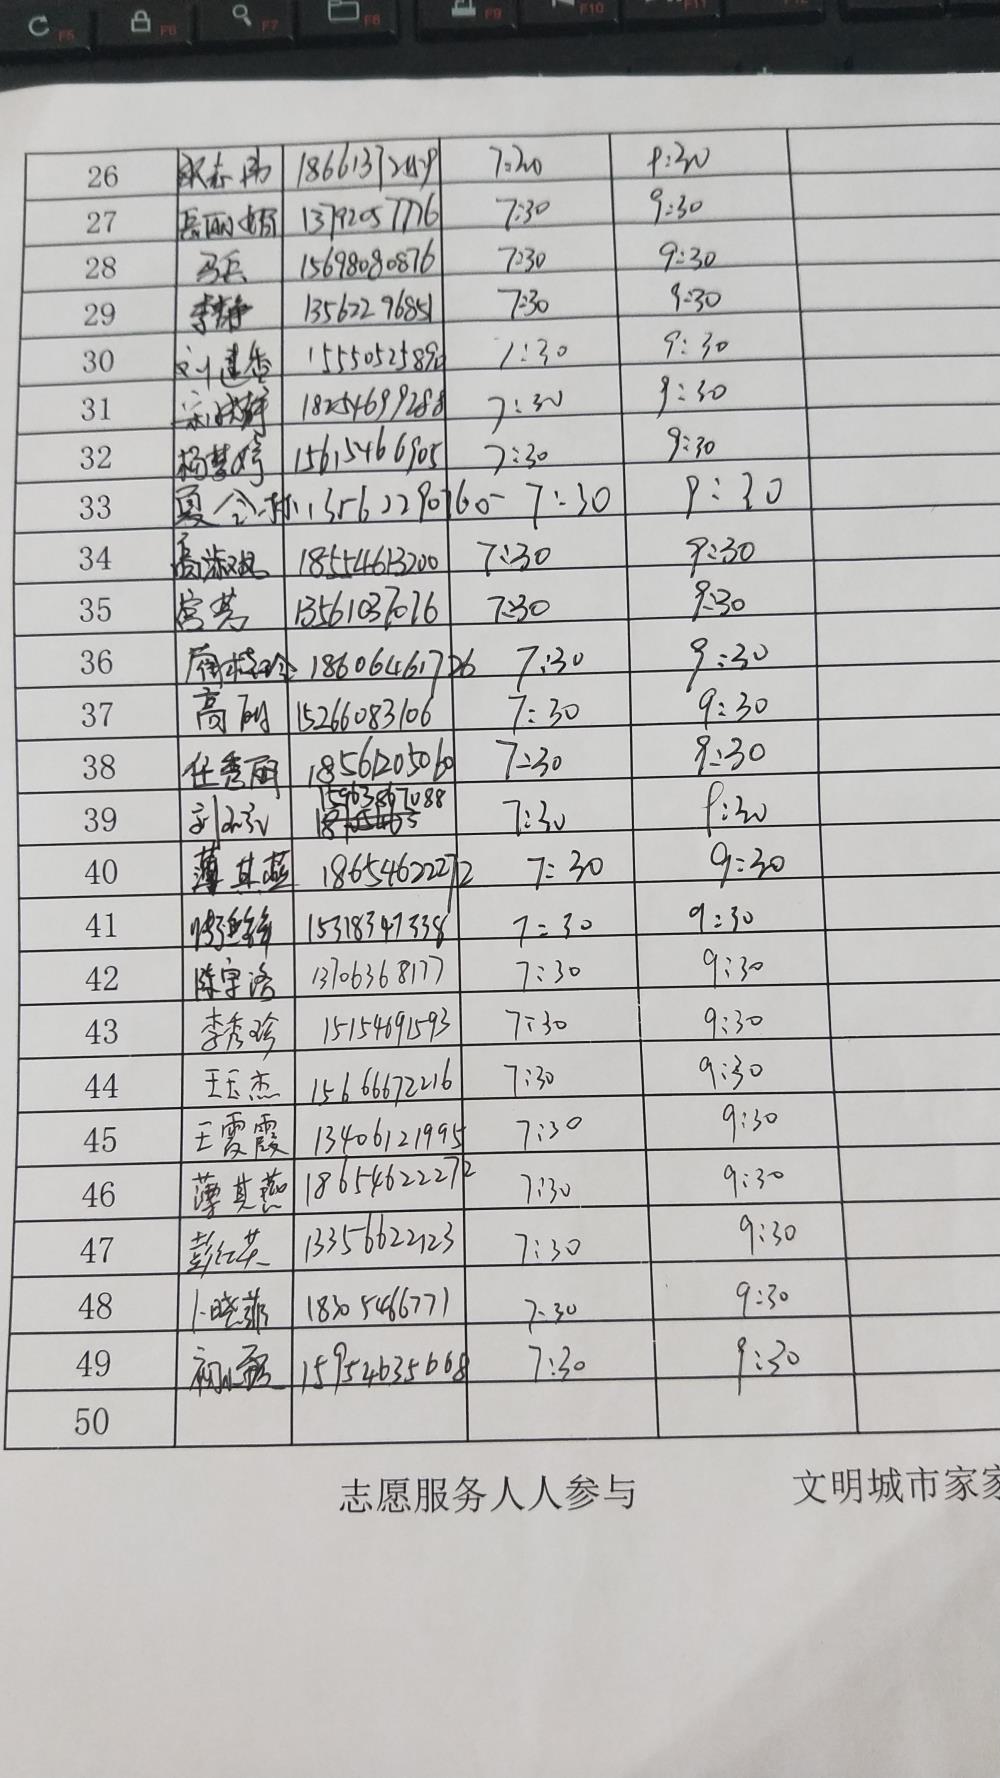 F5 F6 F7 F8 F9 F10 F11
26 7:30 9:30
27 13792057776 7:30 9:30
28 马兵 15698080876 7:30 9:30
29 李静 13562296851 7:30 9:30
30 刘建香 15550525890 7:30 9:30
31 18254699288 7:30 9:30
32 杨梦婷 15615466905 7:30 9:30
33 夏会林 13562290760 7:30 9:30
34 高淑娥 18554613200 7:30 9:30
35 宫英 13561037076 7:30 9:30
36 18606461726 7:30 9:30
37 高丽 15266083106 7:30 9:30
38 任秀丽 18561205060 7:30 9:30
39 15963867088 7:30 9:30
40 薄其燕 18654622272 7:30 9:30
41 15318347338 7:30 9:30
42 陈宇洛 13706368177 7:30 9:30
43 李秀珍 15154691593 7:30 9:30
44 王玉杰 15666672216 7:30 9:30
45 王霞霞 13406121995 7:30 9:30
46 薄其燕 18654622272 7:30 9:30
47 彭红英 13356622123 7:30 9:30
48 卜晓菲 18305466771 7:30 9:30
49 15954635668 7:30 9:30
50
志愿服务人人参与 文明城市家家